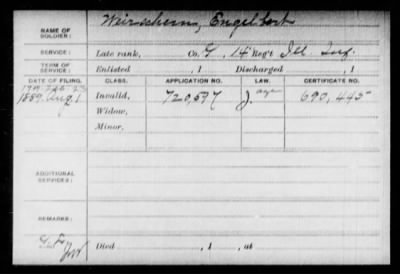 NAME OF SOLDIER: Wirschem, Engelbert
SERVICE: Late rank, Co. G, 14 Reg't Ill. Inf.
TERM OF SERVICE: Enlisted , 1 Discharged , 1
DATE OF FILING. CLASS. APPLICATION NO. LAW. CERTIFICATE NO.
1889 Aug 1 Invalid, 720,597 J. age 690,445
Widow,
Minor,
ADDITIONAL SERVICES:
REMARKS:
Died , 1 , at